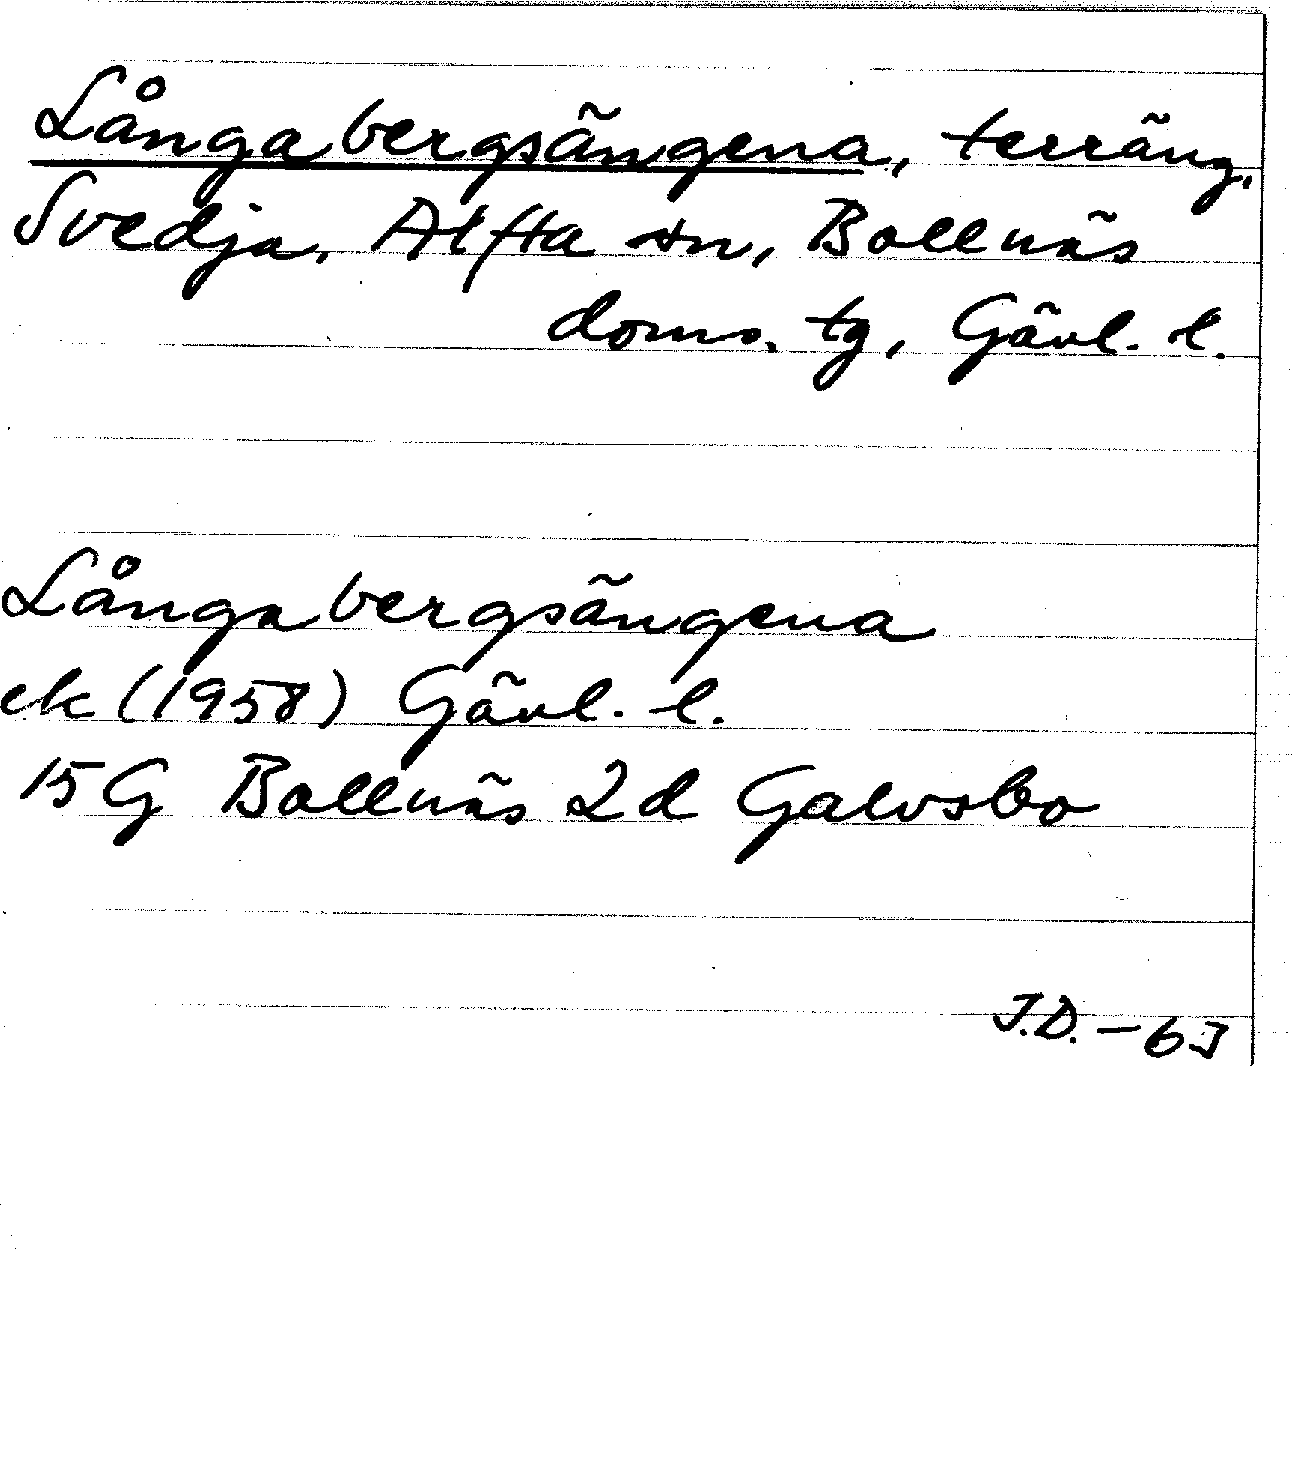 Långabergsängena, terräng,
Svedja, Alfta sn, Bollnäs
doms. tg, Gävl. l.
Långabergsängena
ek (1958) Gävl. l.
15G Bollnäs 2d Galvsbo
J.D. - 63